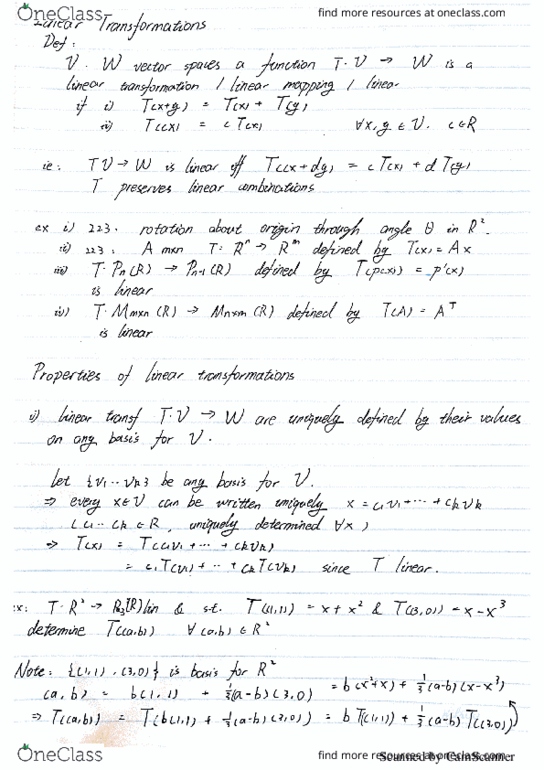 OneClass
find more resources at oneclass.com
Linear Transformations
Def:
V. W vector spaces a function T. V → W is a
linear transformation / linear mapping / linear
if i) T(x+y) = T(x) + T(y)
ii) T(cx) = c T(x) ∀x,y ∈ V. c∈R
ie: T V → W is linear iff T(cx + dy) = cT(x) + d T(y)
T preserves linear combinations
ex i) 223. rotation about origin through angle θ in R².
ii) 223: A mxn T: Rⁿ → Rᵐ defined by T(x) = Ax
iii) T. Pn(R) → Pn-1(R) defined by T(p(x)) = p'(x)
is linear
iv) T. Mmxn (R) → Mnxm (R) defined by T(A) = Aᵀ
is linear
Properties of linear transformations
i) linear transf T. V → W are uniquely defined by their values
on any basis for V.
Let {v1 ·· vk} be any basis for V.
⇒ every x∈V can be written uniquely x = c1v1 + ··· + ckvk
(c1 ·· ck ∈ R, uniquely determined ∀x)
⇒ T(x) = T(c1v1 + ·· + ckvk)
= c1T(v1) + ·· + ckT(vk) since T linear.
ex: T. R² → P3(R) lin & s.t. T(1,1) = x + x² & T(3,0) = x - x³
determine T(a,b) ∀(a,b) ∈ R²
Note: {(1,1), (3,0)} is basis for R²
(a,b) = b(1,1) + ⅓(a-b)(3,0) = b(x²+x) + ⅓(a-b)(x-x³)
⇒ T(a,b) = T(b(1,1) + ⅓(a-b)(3,0)) = b T(1,1) + ⅓(a-b) T(3,0)
OneClass
find more resources at oneclass.com
Scanned by CamScanner